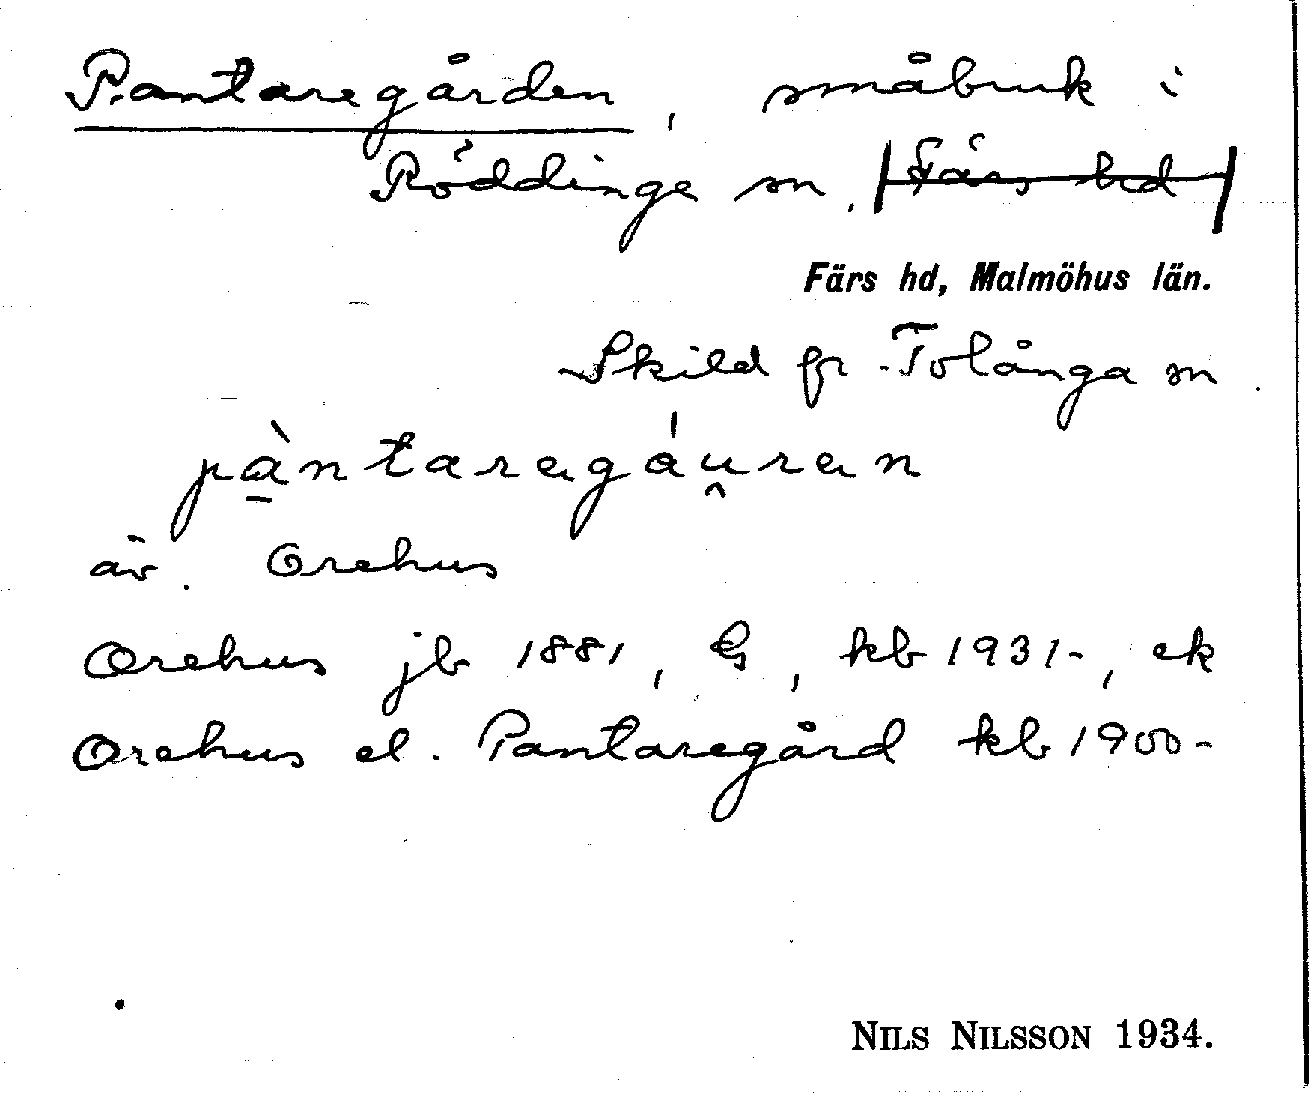 Pantaregården, småbruk i
Röddinge sn, Färs hd
Färs hd, Malmöhus län.
Skild fr. Tolånga sn.
pàntaregáu̯ren
äv. Orehus
Orehus jb 1881, G, kb 1931-, ek
Orehus el. Pantaregård kb 1900-
NILS NILSSON 1934.